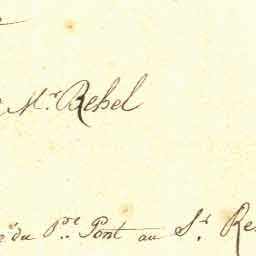 Mr. Rebel
du Pre. Pont au Sr. Re